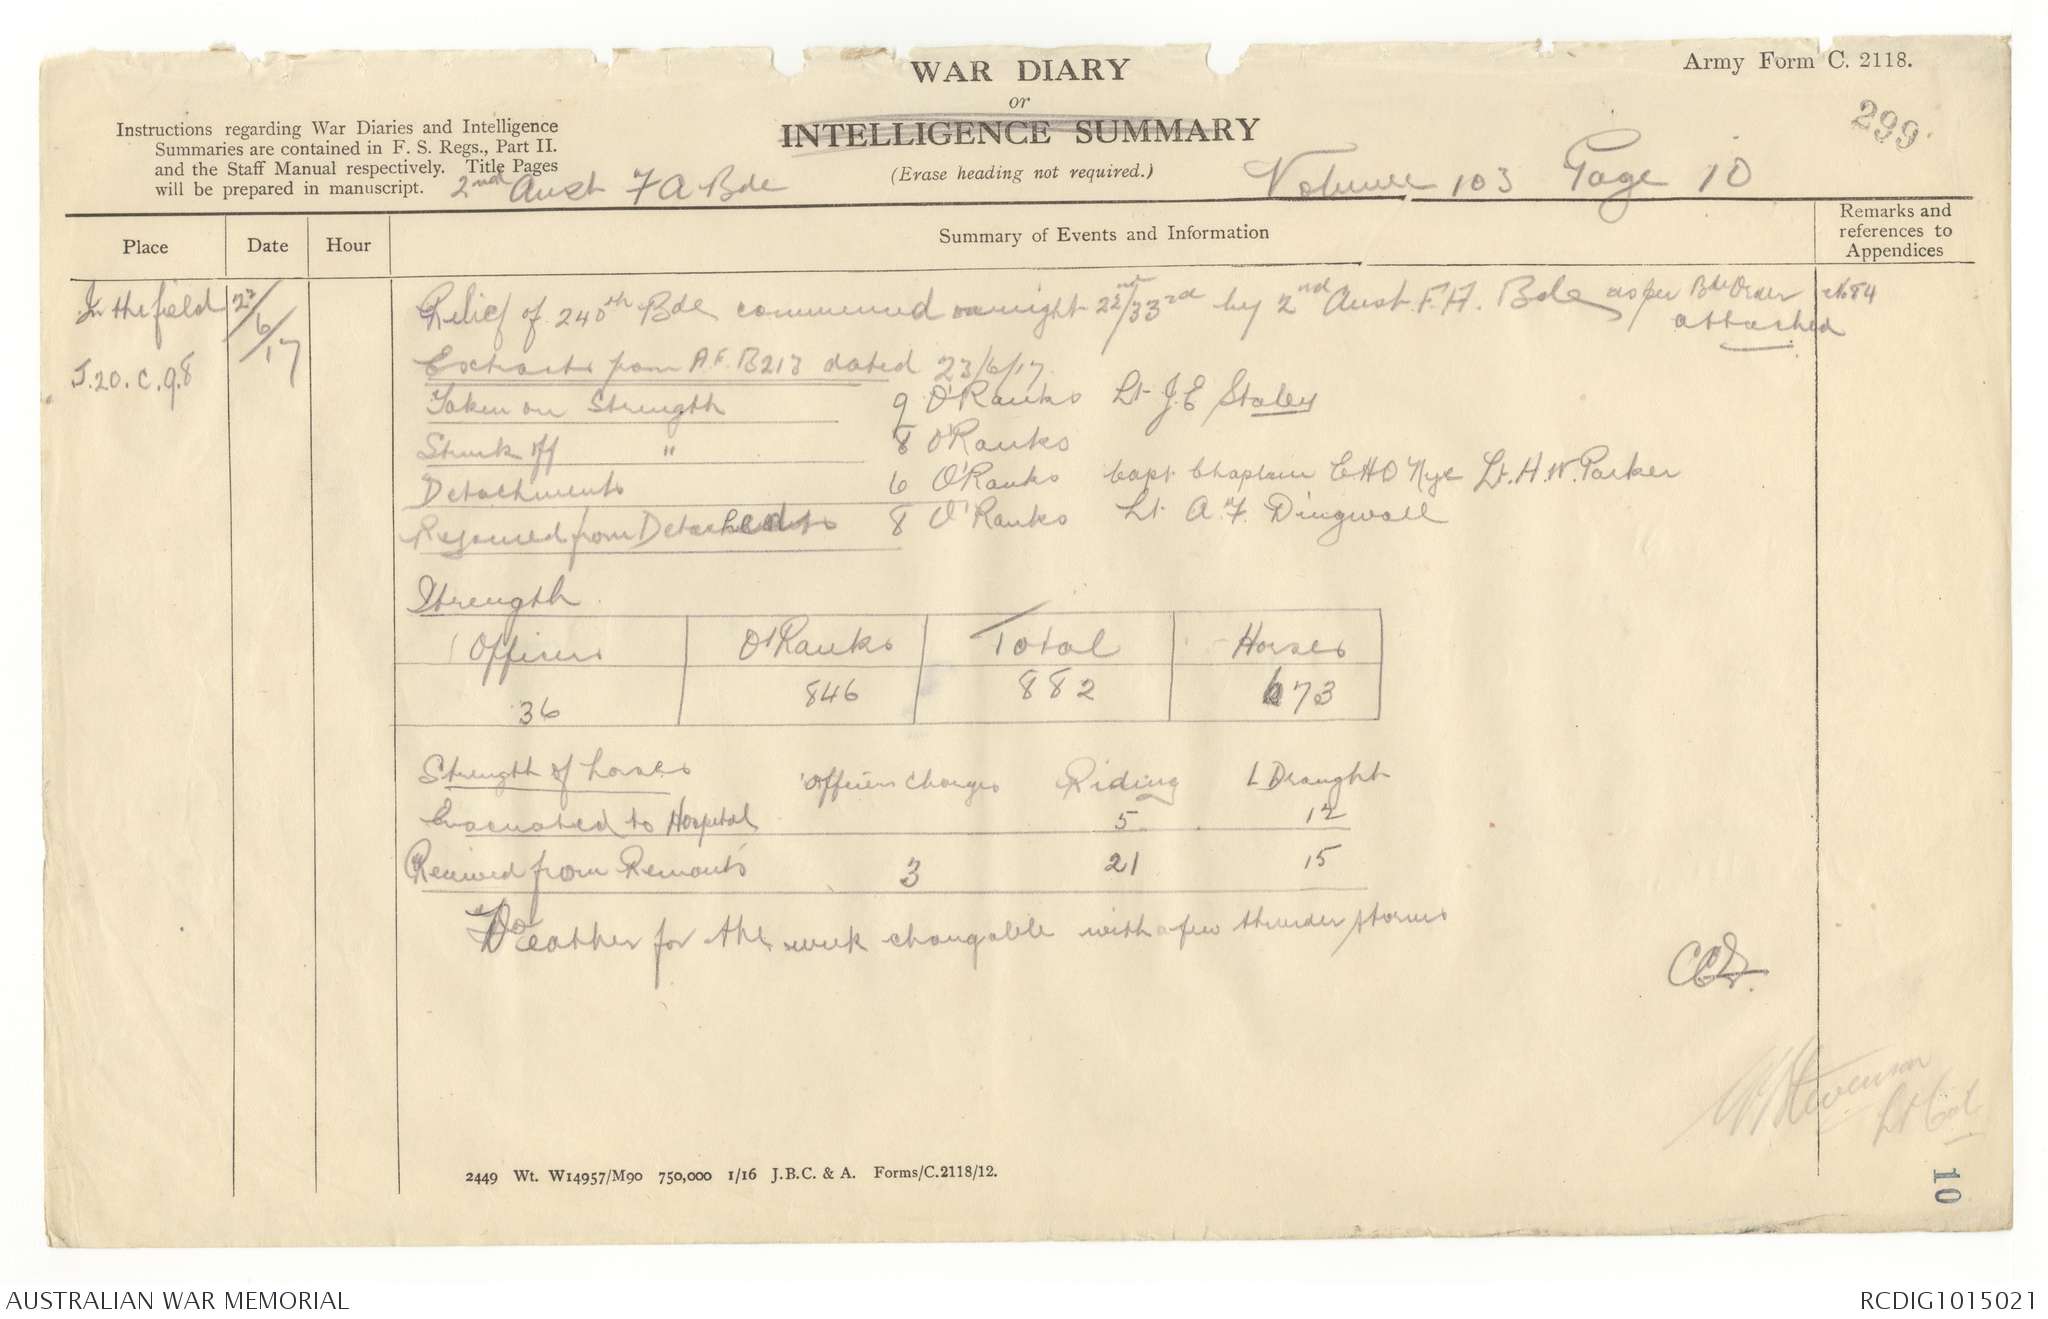 WAR DIARY
or
INTELLIGENCE SUMMARY
(Erase heading not required.)
Army Form C. 2118.
299
Instructions regarding War Diaries and Intelligence
Summaries are contained in F. S. Regs., Part II.
and the Staff Manual respectively. Title Pages
will be prepared in manuscript.
2nd Aust FA Bde
Volume 103 Page 10
Place
Date
Hour
Summary of Events and Information
Remarks and
references to
Appendices
In the field
23/6/17
J.20.c.9.8
Relief of 240th Bde commenced on night 22nd/33rd by 2nd Aust F.A. Bde as per Bde Order No 84
attached
Extracts from A.F. B213 dated 23/6/17
Taken on Strength 9 O'Ranks Lt J.E Staley
Struck off " 8 O'Ranks
Detachments 6 O'Ranks Capt Chaplain E H O Nye Lt. H.W. Parker
Rejoined from 8 O'Ranks Lt A.F. Dingwall
Strength
Officers O'Ranks Total Horses
36 846 882 673
Strength of horses Officers Charges Riding L Draught
Evacuated to Hospital 5 12
Received from Remounts 3 21 15
Weather for the week changable with a few thunder storms
Stevenson
Lt Col.
2449 Wt. W14957/M90 750,000 1/16 J.B.C. & A. Forms/C.2118/12.
10
AUSTRALIAN WAR MEMORIAL
RCDIG1015021